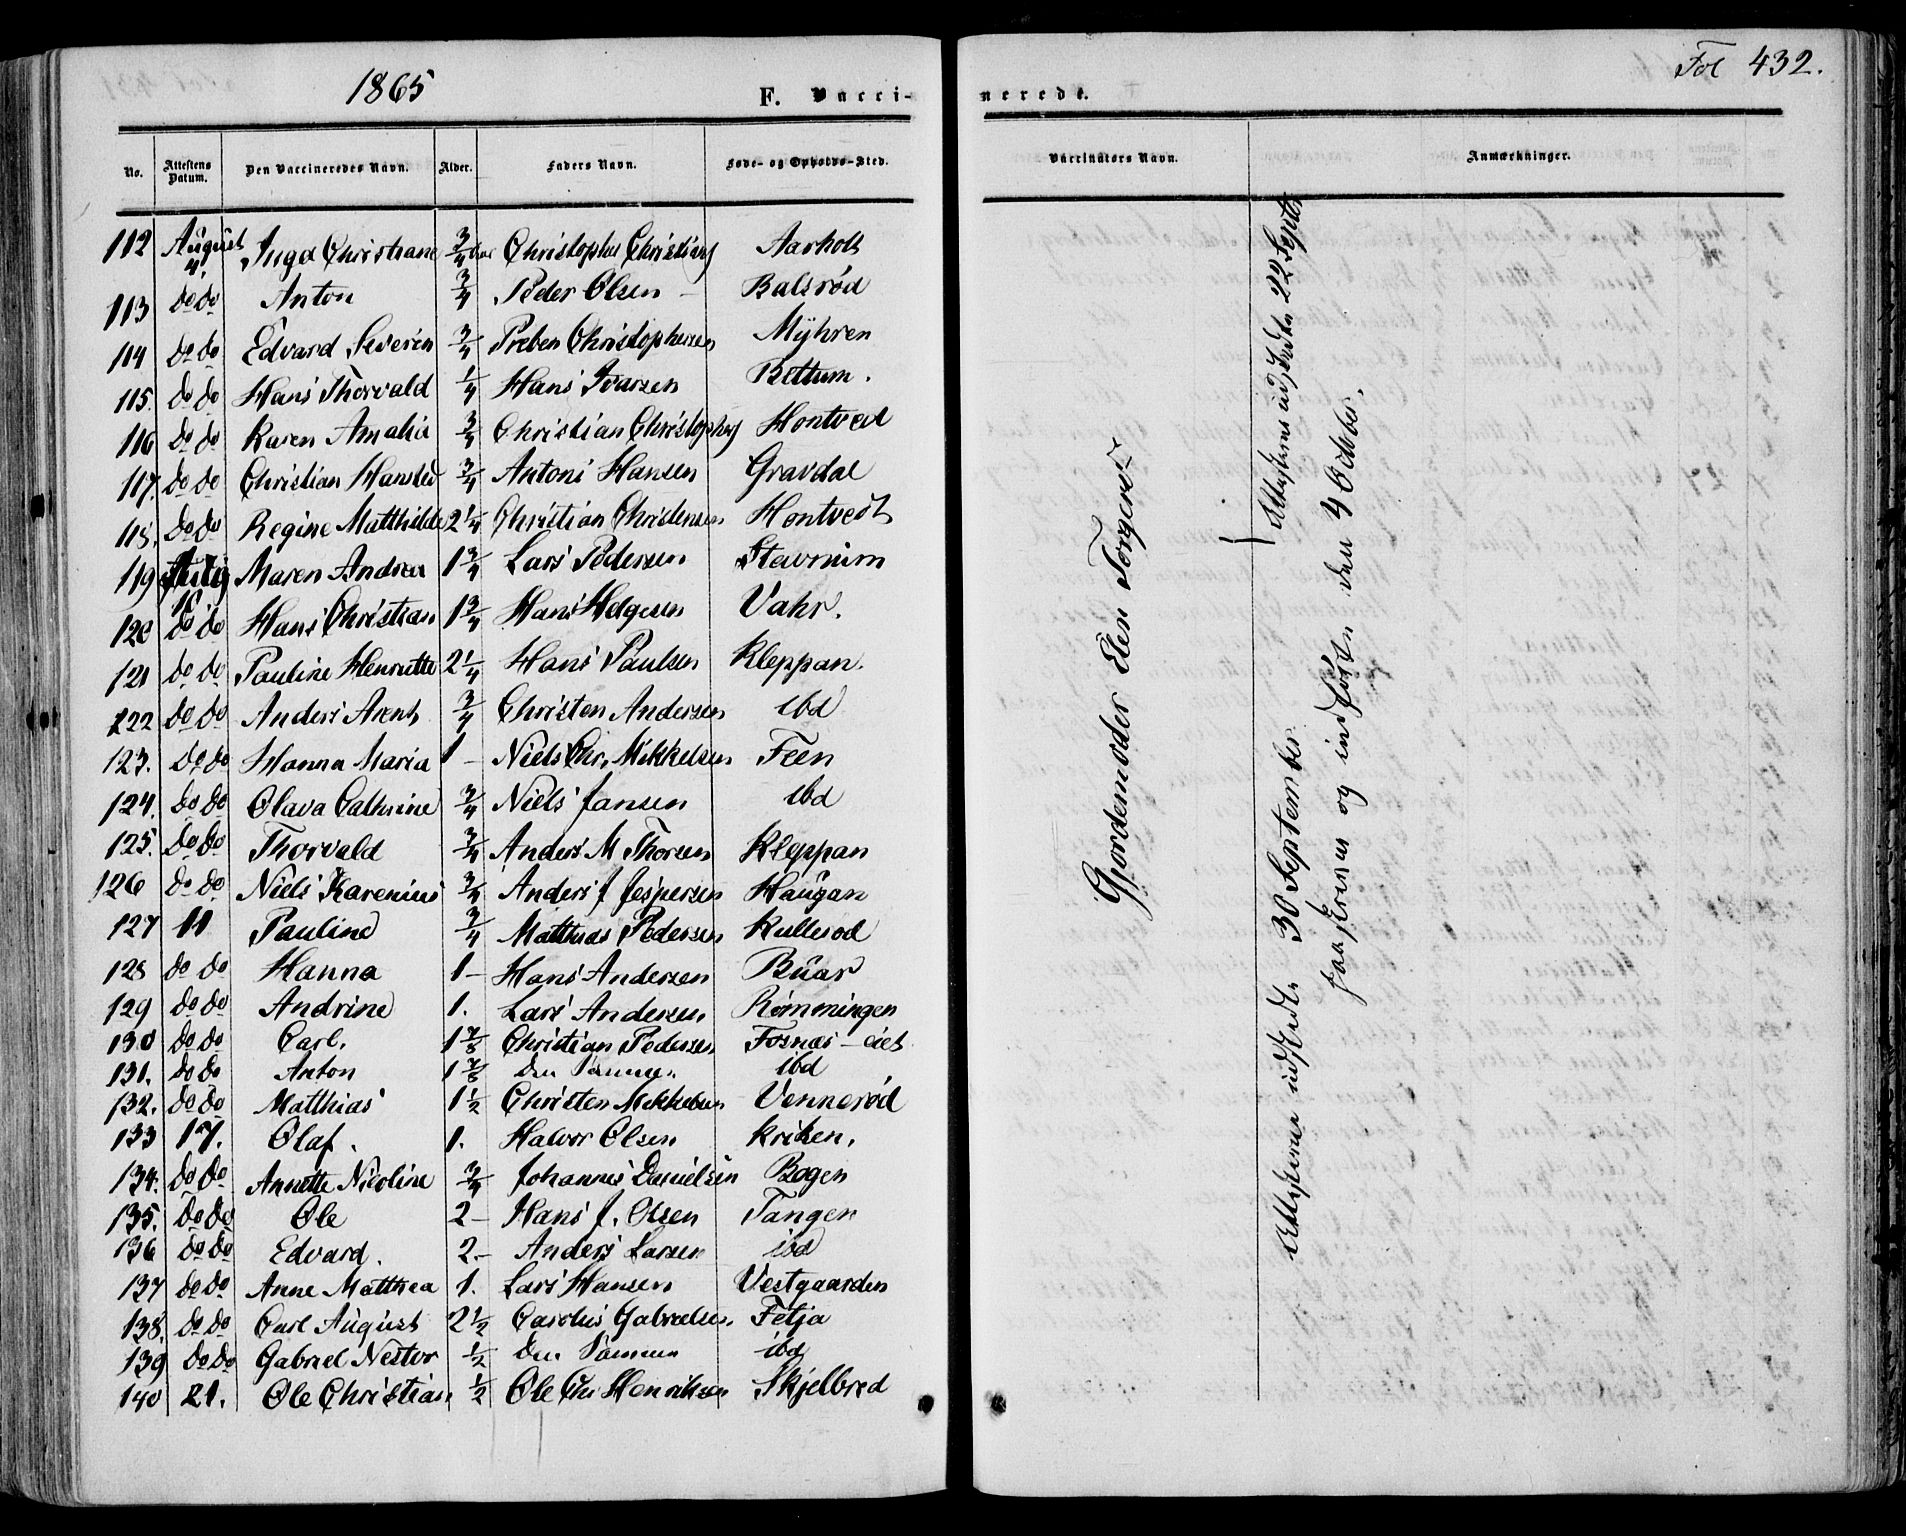 1865
F. Vacci-
neredt.
Fol 432.
No. Attestens Datum. Den Vaccineredes Navn. Alder. Faders Navn. Føde- og Opholds-Sted. Vaccinators Navn. Anmærkninger.
112 August 4. Inga Christiane 3/4 Aar Christopher Christians Aarholt
113 do do Anton 3/4 Peder Olsen - Balsrød
114 do do Edvard Severin 3/4 Preben Christophersen Myhren
115. do do Hans Thorvald 1/4 Hans Ivarsen Bettum.
116 do do Karen Amalia 3/4 Christian Christophers Hontvedt
117. do do Christian Hansteo 3/4 Antoni Hansen Gravdal
118. do do Regine Matthilde 2 1/4 Christian Christensen Hontvedt
119 16 Maren Andrea 1 3/4 Lars Pedersen Stavnum
120 do do Hans Christian 1 3/4 Hans Helgesen Vahr.
121 do do Pauline Henriette 2 1/4 Hans Paulsen Kleppan.
122 do do Anders Arent 3/4 Christen Andersen ibd
123. do do Hanna Maria 1 - Niels Chr. Mikkelsen Feen
124. do do Olava Cathrine 3/4 Niels Jansen ibd
125. do do Thorvald 3/4 Anders M Thorsen Kleppan
126 do do Niels Karenius 3/4 Anders J Jespersen Haugan
127 11 Pauline 3/4 Matthias Pedersen Kullerod
128 do do Hanna 1 - Hans Andersen Buar
129 do do Andrine 1. Lars Andersen Rømmingen
130 do do Carl. 1 7/8 Christian Pedersen Fosnæs - eiet
131. do do Anton 1 7/8 Den Samme. ibd
132. do do Matthias 1 1/2 Christen Mikkelsen Vennerød
133 17. Olaf. 1. Halvor Olsen Kriken.
134. do do Annette Nicoline 3/4 Johannes Danielsen Bogen
135. do do Ole 2 - Hans J. Olsen Tangen
136 do do Edvard. 2. - Anders Larsen ibd
137 do do Anne Matthea 1. Lars Hansen Vestgaarden
138. do do Carl August 2 1/2 Carolus Gabrielsen Fetja
139 do do Gabriel Nestor 1/2 Den Samme ibd
140 21. Ole Christian 1/2 Ole Chr Henriksen Skjelbred
Gjordemoder Elen Torgersd.
Attesterne udstedte 22 Septbr
Attesterne udstedt 30 September.
paaskrevne og indførte den 4 October.